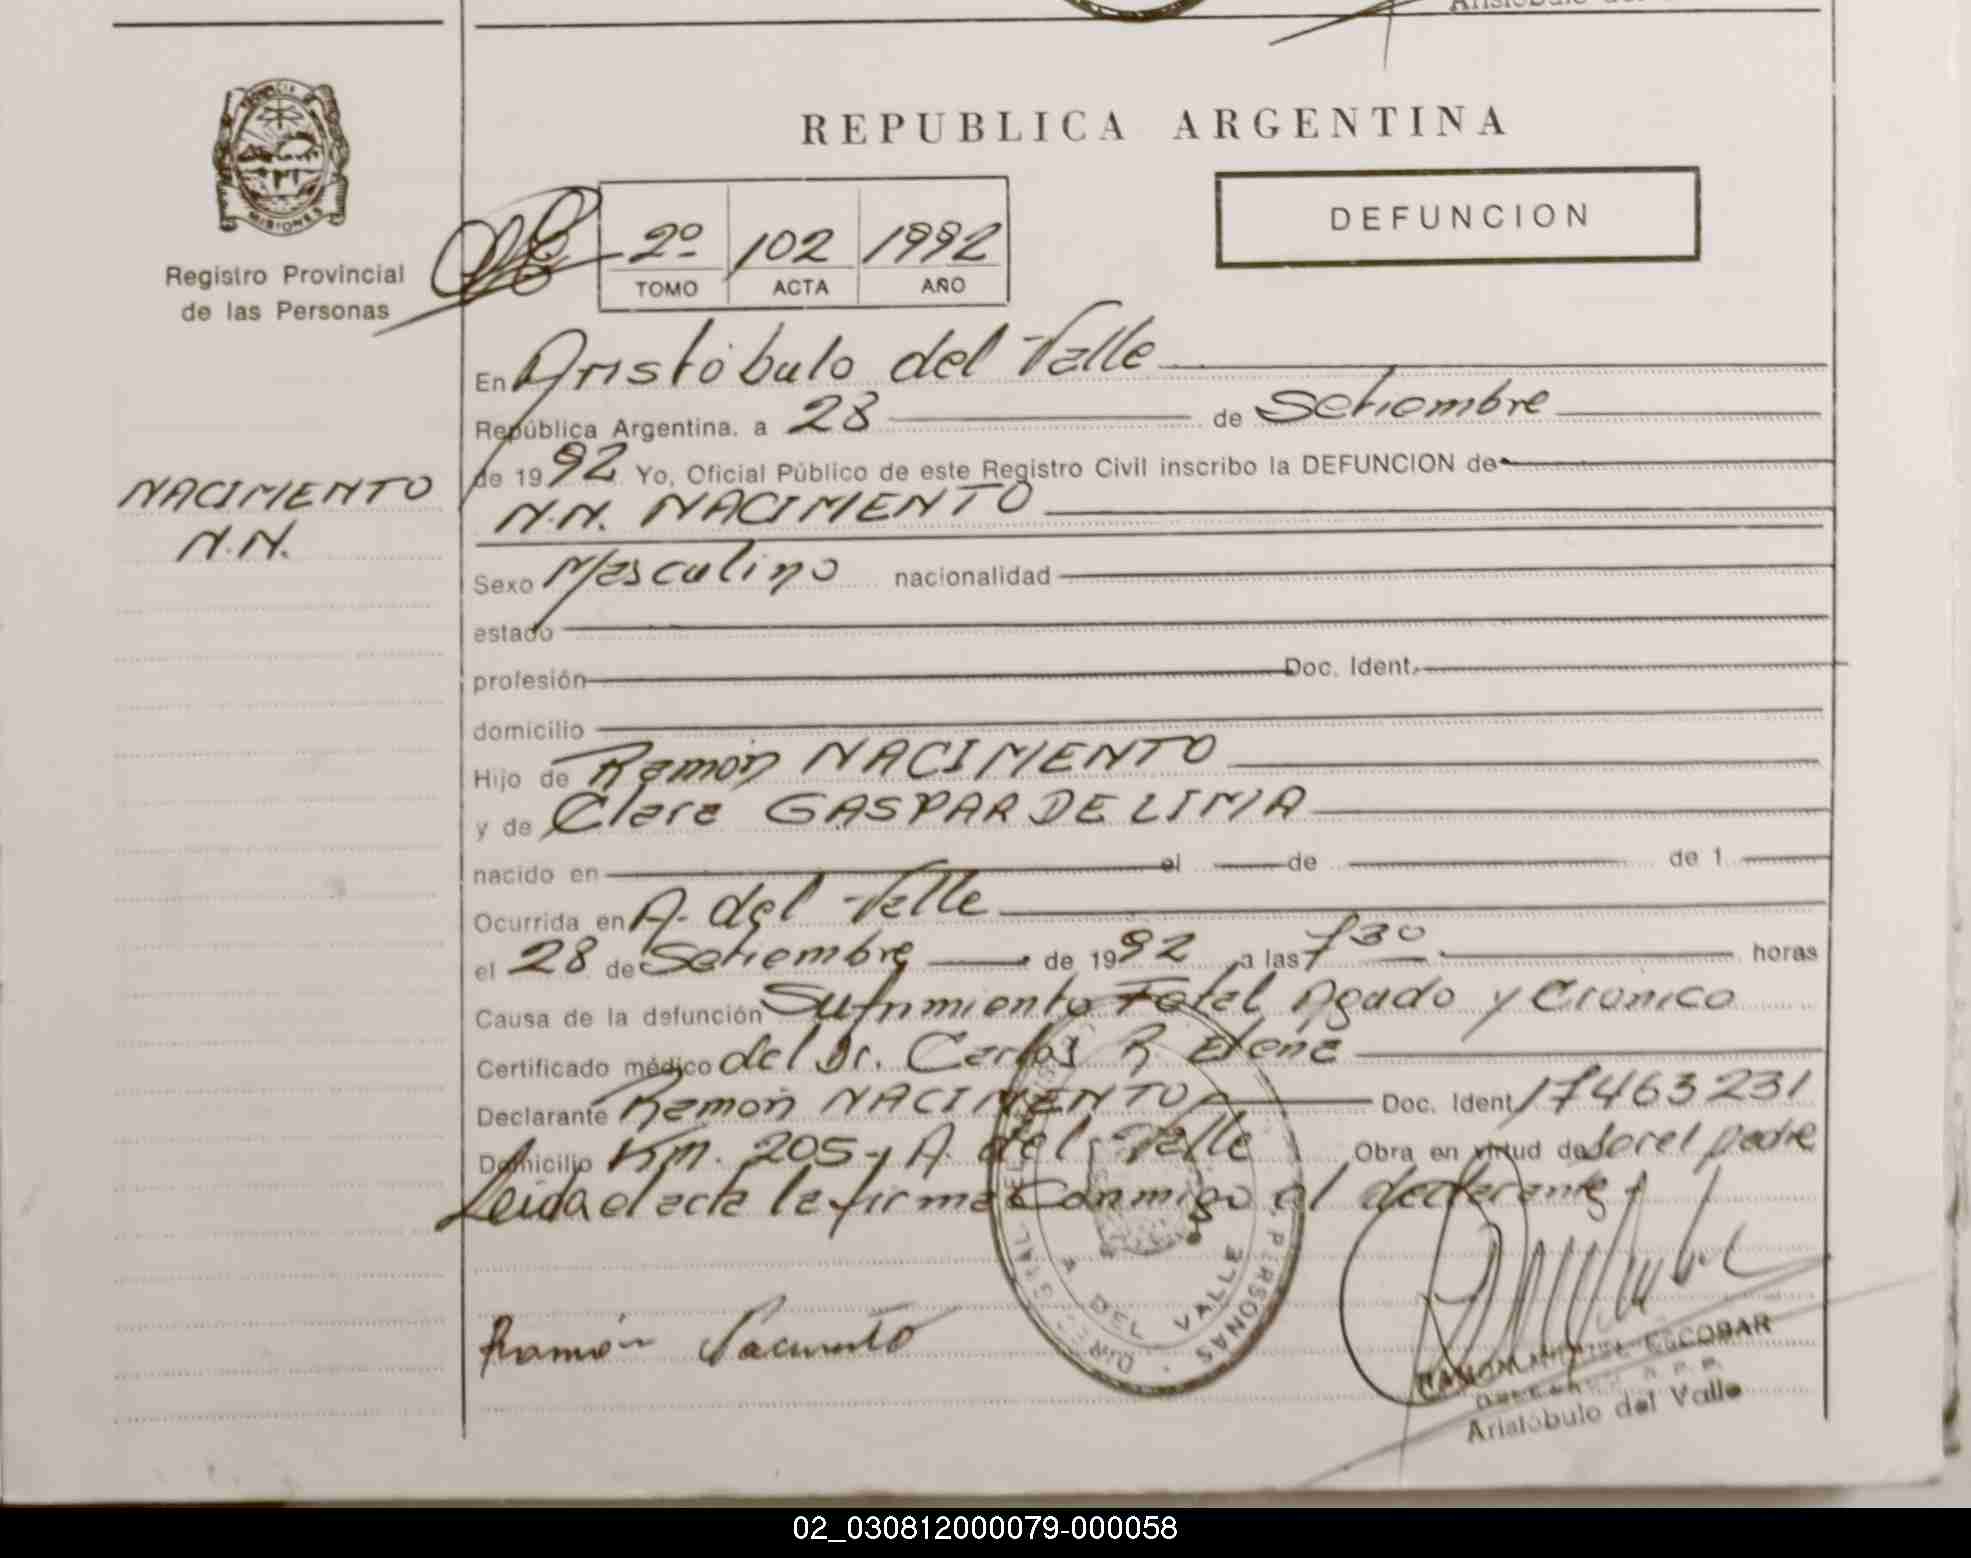 REPUBLICA ARGENTINA
MISIONES
Registro Provincial
de las Personas
2º 102 1992
TOMO ACTA AÑO
DEFUNCION
En Aristóbulo del Valle
República Argentina. a 28 de Setiembre
de 1992 Yo, Oficial Público de este Registro Civil inscribo la DEFUNCION de
NACIMIENTO
N.N.
N.N. NACIMIENTO
Sexo Masculino nacionalidad
estado
profesión Doc. Ident.
domicilio
Hijo de Ramón NACIMIENTO
y de Clara GASPAR DE LIMA
nacido en el de de 1
Ocurrida en A. del Valle
el 28 de Setiembre de 1992 a las 7 30 horas
Causa de la defunción Sufrimiento Fetal Agudo y Cronico
Certificado médico del Dr. Carlos R.
Declarante Ramón NACIMIENTO Doc. Ident 17463231
Domicilio Km. 205 - A. del Valle Obra en virtud de ser el padre
Leida el acta la firma Conmigo el declarante
A DEL VALLE
PERSONAS
Ramón Nacimiento
ESCOBAR
Aristóbulo del Valle
02_030812000079-000058